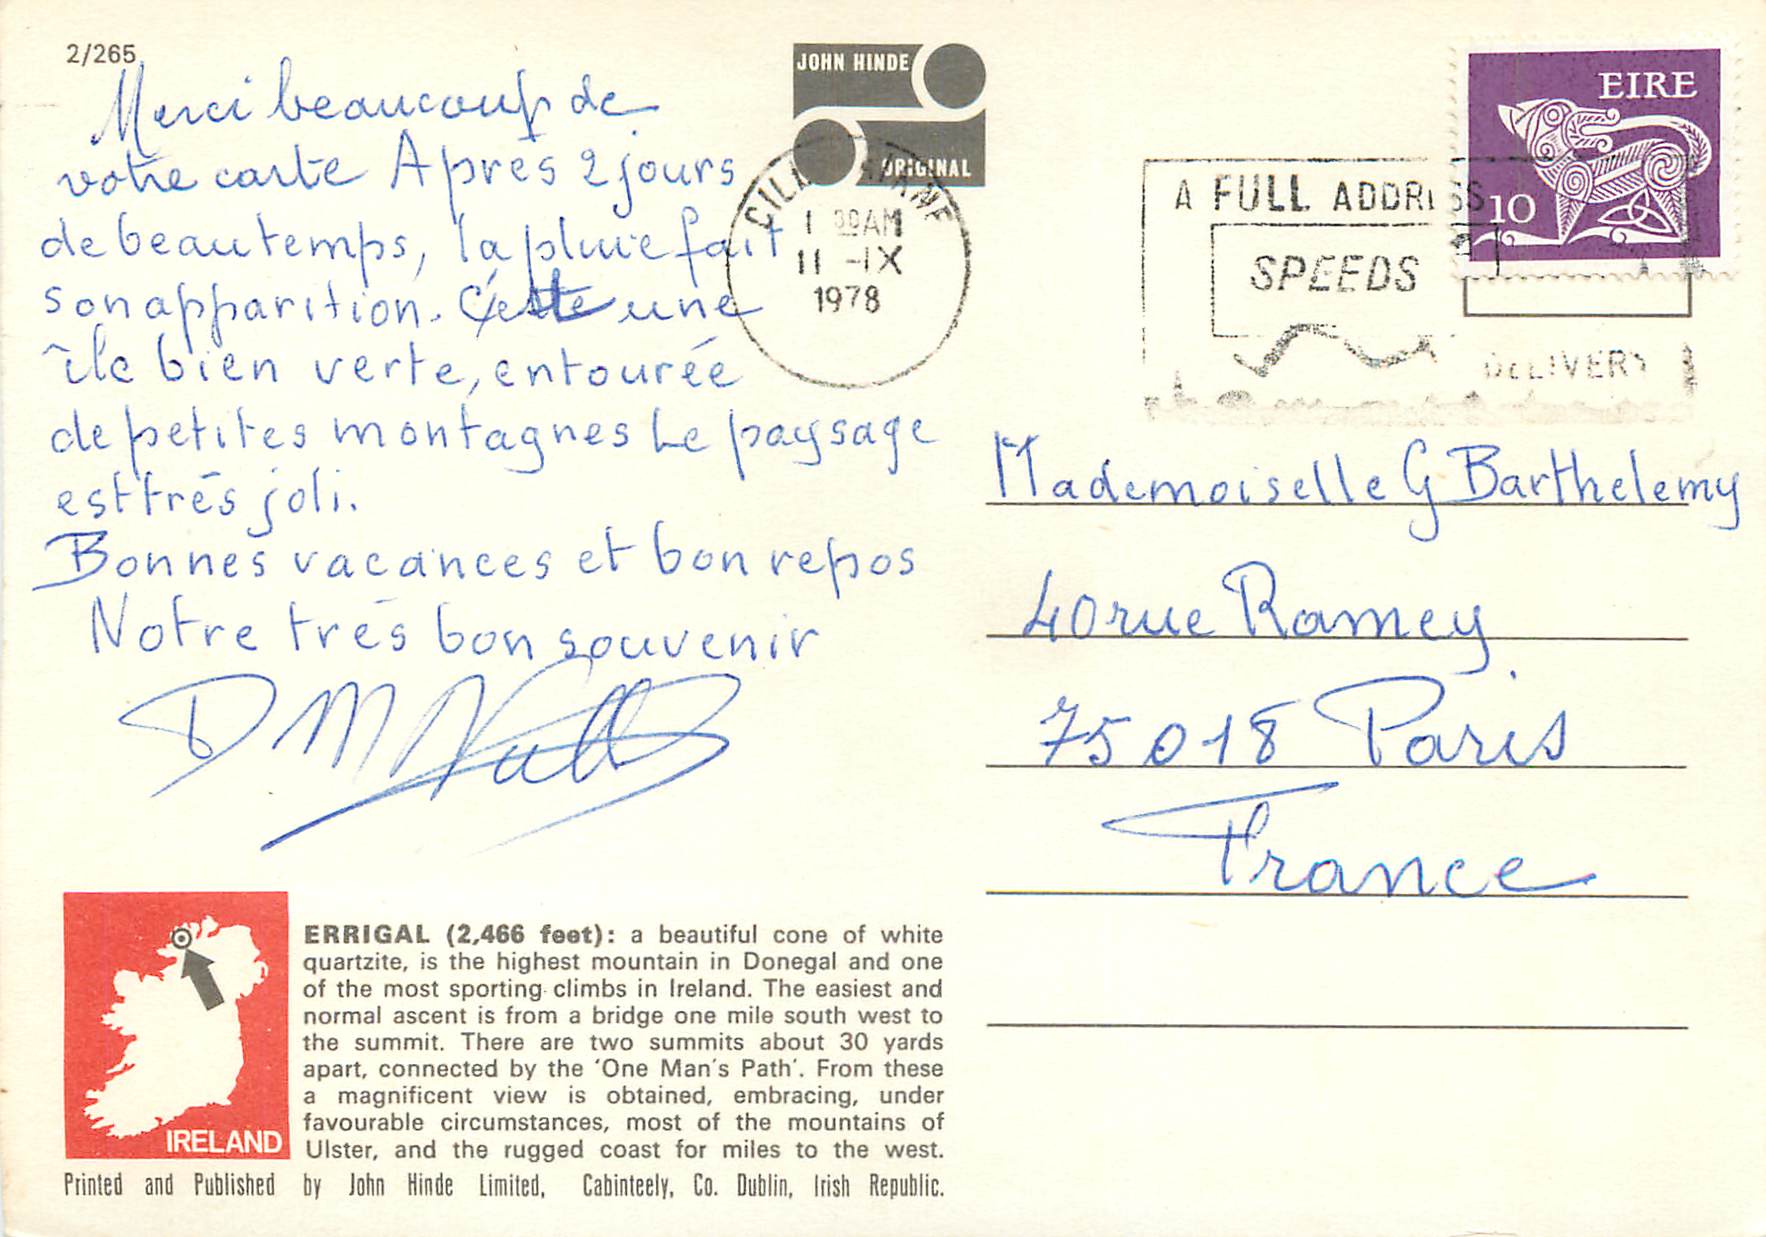 2/265
Merci beaucoup de
votre carte Après 2 jours
de beau temps, la pluie fait
son apparition. C'est une
île bien verte, entourée
de petites montagnes Le paysage
est trés joli.
Bonnes vacances et bon repos
Notre trés bon souvenir
JOHN HINDE
ORIGINAL
11 -IX
1978
A FULL ADDRESS
SPEEDS
DELIVERY
EIRE
10
Mademoiselle G Barthelemy
40 rue Ramey
75018 Paris
France
IRELAND
ERRIGAL (2,466 feet): a beautiful cone of white
quartzite, is the highest mountain in Donegal and one
of the most sporting climbs in Ireland. The easiest and
normal ascent is from a bridge one mile south west to
the summit. There are two summits about 30 yards
apart, connected by the 'One Man's Path'. From these
a magnificent view is obtained, embracing, under
favourable circumstances, most of the mountains of
Ulster, and the rugged coast for miles to the west.
Printed and Published by John Hinde Limited, Cabinteely, Co. Dublin, Irish Republic.